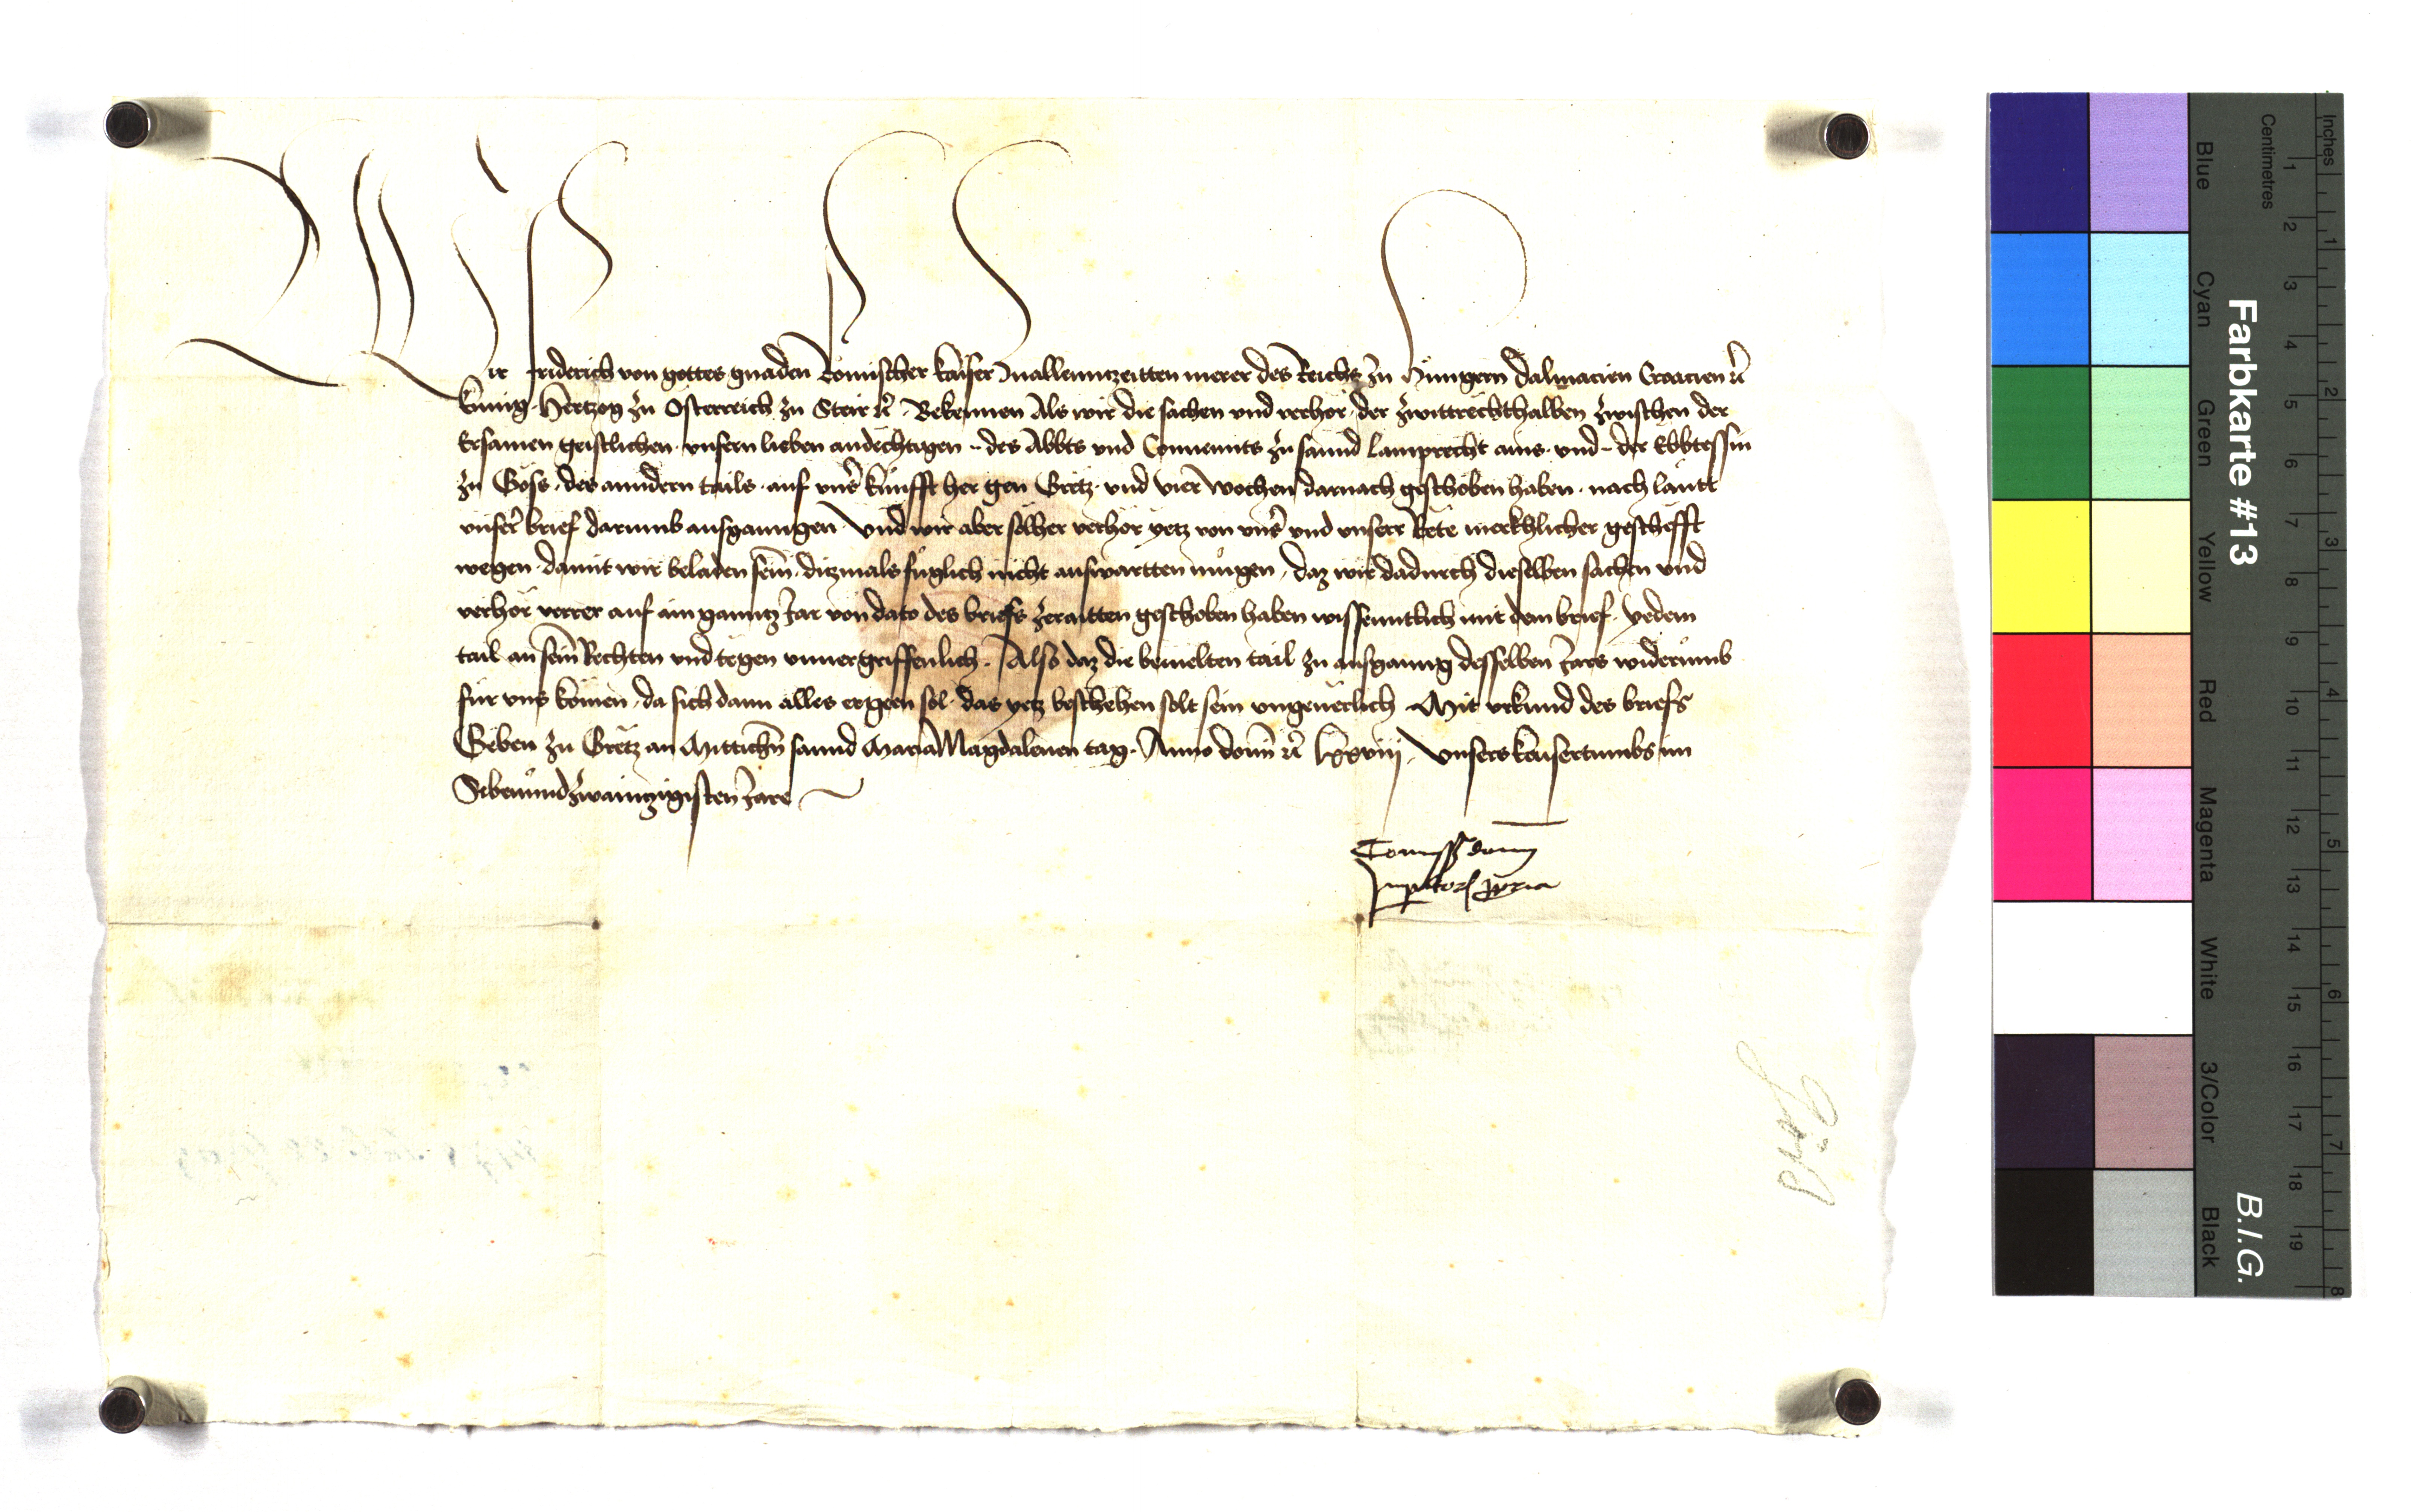 Wir Friderich von gottes gnaden Romischer Kaiser zuallennczeitten merer des Reichs zu Hungern Dalmacien Croacien ꝛc̃
Kunig Hertzog zu Osterreich zu Steir ꝛc̃ Bekennen Als wir die sachen und verhör der zwittrechthalben zwischen der
Ersamen geistlichen unsern lieben andechtigen .. des Abbts und Conuennts zu sannd Lamprecht ains und .. der Ebbtessin
zu Göss des anndern tails auf unser kunfft her gen Gretz und vier wochen darnach geschoben haben nach lautt
unser brief darumb ausganngen Und wir aber solher verhör yetz von unser und unserr Rete merkhlicher gescheft
wegen damit wir beladen sein diczmals fuglich nicht auswartten mugen daz wir dadurch dieselben sachen und
verhör verrer auf ain ganntz Jar von dato des briefs zeraitten geschoben haben wissenntlich mit dem brief yedem
tail an sein Rechten und tegen unuergriffenlich Also daz die bemelten tail zu ausganng desselben Jars widerumb
fur uns komen da sich dann alles ergeen sol das yetz beschehen solt sein ungeuerlich Mit urkund des briefs
Geben zu Gretz an Mittichen sannd Maria Magdalenen tag Anno domini ꝛc̃ lxxviij Unsers Kaisertumbs im
Sibenundzwaintzigisten Jare
Comissio domini
Imperatoris propria
Göss
Farbkarte #13
B.I.G.
Inches 1 2 3 4 5 6 7 8
Centimetres 1 2 3 4 5 6 7 8 9 10 11 12 13 14 15 16 17 18 19
Blue
Cyan
Green
Yellow
Red
Magenta
White
3/Color
Black